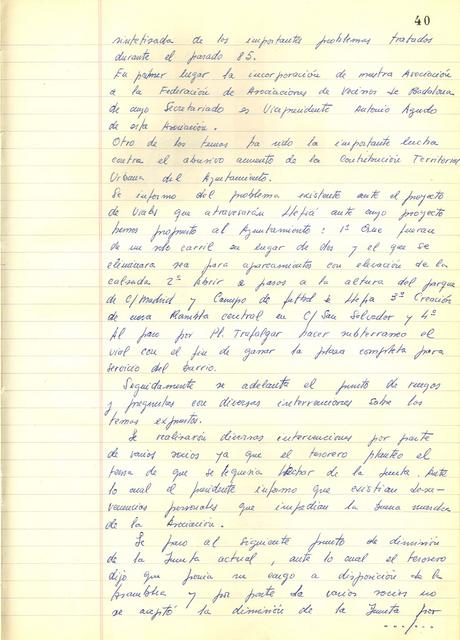 40
sintetizada de los importantes problemas tratados
durante el pasado 85.
En primer lugar la incorporación de nuestra Asociación
a la Federación de Asociaciones de Vecinos de Badalona
de cuyo Secretariado es Vicepresidente Antonio Agudo
de esta Asociación.
Otro de los temas ha sido la importante lucha
contra el abusivo aumento de la Contribución Territorial
Urbana del Ayuntamiento.
Se informo del problema existente ante el proyecto
de Viales que atravesarán Llefiá ante cuyo proyecto
hemos propuesto al Ayuntamiento: 1º Que fueran
de un solo carril en lugar de dos y el que se
eliminara sea para aparcamientos con elevación de la
calzada 2º Abrir a pasos a la altura del parque
de C/Madrid y Campo de futbol de Llefia 3º Creación
de una Rambla central en C/ San Salvador y 4º
Al paso por Pl. Trafalgar hacer subterraneo el
vial con el fin de ganar la plaza completa para
servicio del barrio.
Seguidamente se adelanto el punto de ruegos
y preguntas con diversas intervenciones sobre los
temas expuestos.
Se realizarón diversas intervenciones por parte
de varios socios ya que el tesorero planteo el
tema de que se le queria hechar de la Junta. Ante
lo cual el presidente informo que existian desavenencias
personales que impedian la buena marcha
de la Asociación.
Se paso al siguiente punto de dimisión
de la Junta actual, ante lo cual el tesorero
dijo que ponia su cargo a disposición de la
Asamblea y por parte de varios socios no
se aceptó la dimisión de la Junta por
...../...